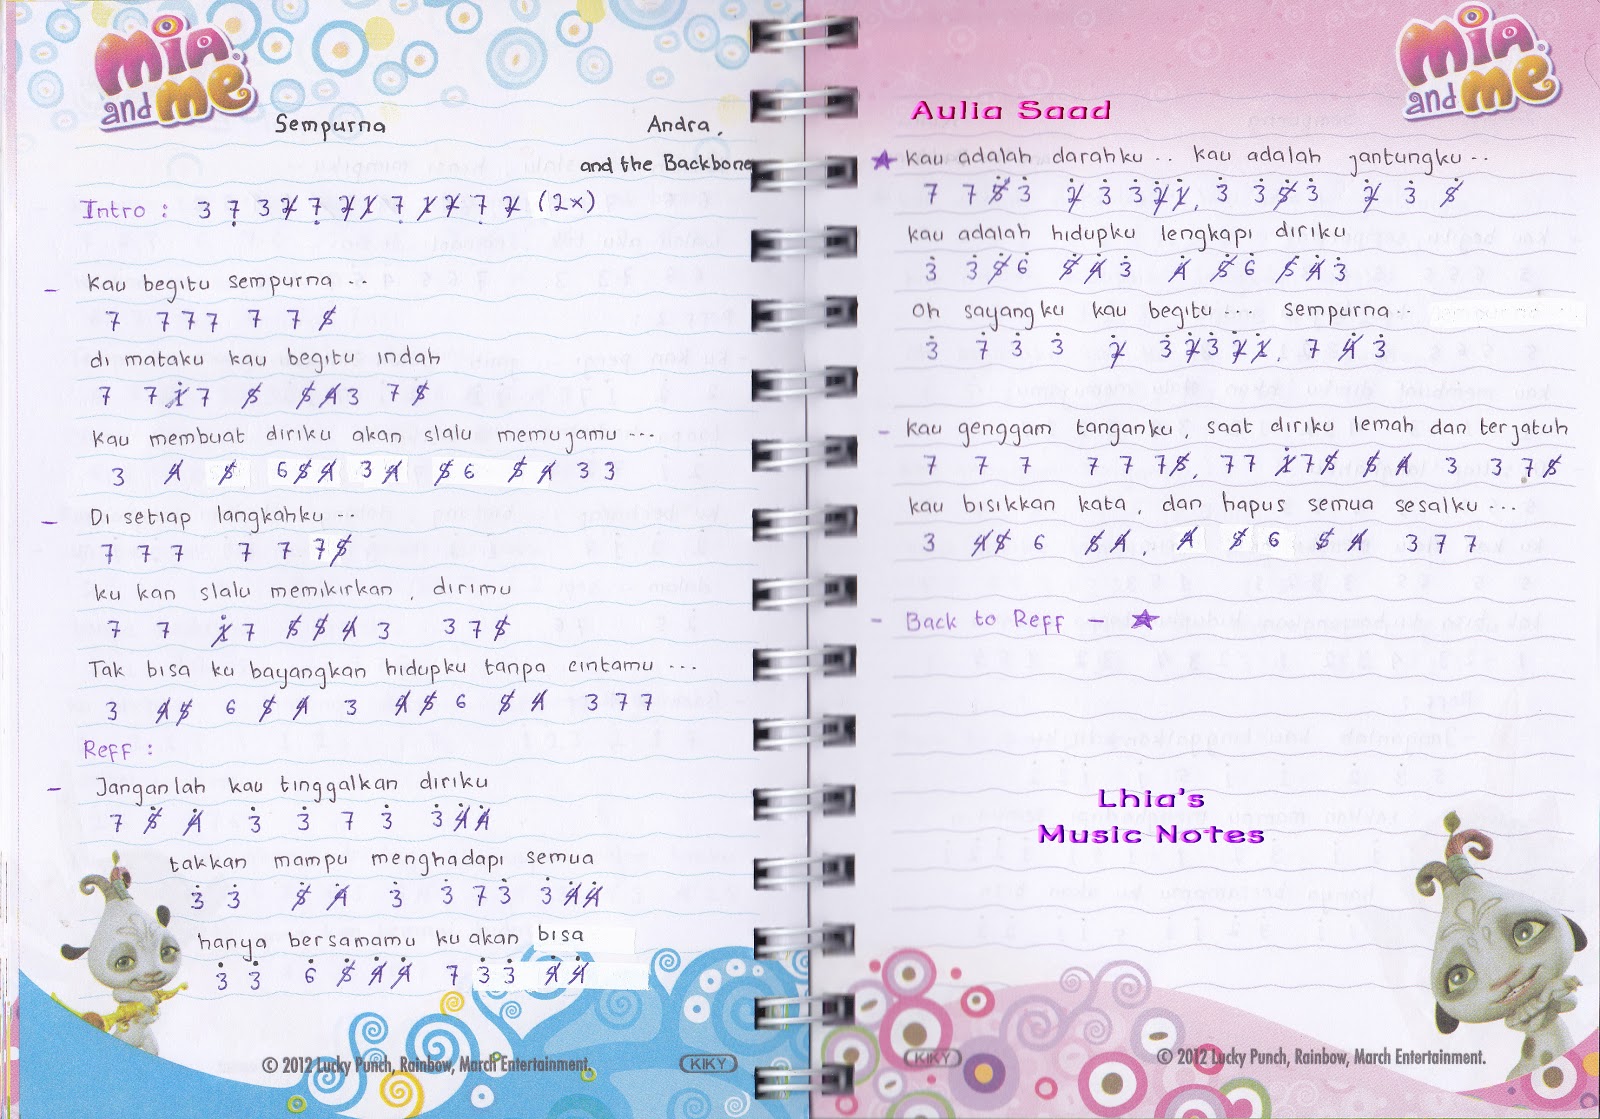 Mia and me
Sempurna Andra,
and the Backbone
Intro : 3 7̣ 3 2̸ 7̣ 2̸ 1̸ 7̣ 1̸ 2̸ 7̣ 2̸ (2x)
- Kau begitu sempurna ..
7 7 7 7 7 7 5̸
di mataku kau begitu indah
7 7 1̸̇ 7 5̸ 5̸ 4̸ 3 7 5̸
Kau membuat diriku akan slalu memujamu ...
3 4̸ 5̸ 6 5̸ 4̸ 3 4̸ 5̸ 6 5̸ 4̸ 3 3
- Di setiap langkahku ..
7 7 7 7 7 7 5̸
ku kan slalu memikirkan, dirimu
7 7 1̸̇ 7 5̸ 5̸ 4̸ 3 3 7 5̸
Tak bisa ku bayangkan hidupku tanpa cintamu ...
3 4̸ 5̸ 6 5̸ 4̸ 3 4̸ 5̸ 6 5̸ 4̸ 3 7 7
Reff :
- Janganlah kau tinggalkan diriku
7 5̸̇ 4̸̇ 3̇ 3̇ 7 3̇ 3̇ 4̸̇ 4̸̇
takkan mampu menghadapi semua
3̇ 3̇ 5̸̇ 4̸̇ 3̇ 3̇ 7 3̇ 3̇ 4̸̇ 4̸̇
hanya bersamamu ku akan bisa
3̇ 3̇ 6̇ 5̸̇ 4̸̇ 4̸̇ 7 3̇ 3̇ 4̸̇ 4̸̇
© 2012 Lucky Punch, Rainbow, March Entertainment.
KIKY
Mia and me
Aulia Saad
★ Kau adalah darahku .. kau adalah jantungku ..
7 7 5̸̇ 3̇ 2̸̇ 3̇ 3̇ 2̸̇ 1̸̇, 3̇ 3̇ 5̸̇ 3̇ 2̸̇ 3̇ 5̸̇
kau adalah hidupku lengkapi diriku
3̇ 3̇ 5̸̇ 6̇ 5̸̇ 4̸̇ 3̇ 4̸̇ 5̸̇ 6̇ 5̸̇ 4̸̇ 3̇
Oh sayangku kau begitu ... sempurna ..
3̇ 7 3̇ 3̇ 2̸̇ 3̇ 2̸̇ 3̇ 2̸̇ 1̸̇, 7 4̸̇ 3̇
- kau genggam tanganku, saat diriku lemah dan terjatuh
7 7 7 7 7 7 5̸, 7 7 1̸̇ 7 5̸ 5̸ 4̸ 3 3 7 5̸
kau bisikkan kata, dan hapus semua sesalku ...
3 4̸ 5̸ 6 5̸ 4̸, 4̸ 5̸ 6 5̸ 4̸ 3 7 7
- Back to Reff - ★
Lhia's
Music Notes
KIKY
© 2012 Lucky Punch, Rainbow, March Entertainment.